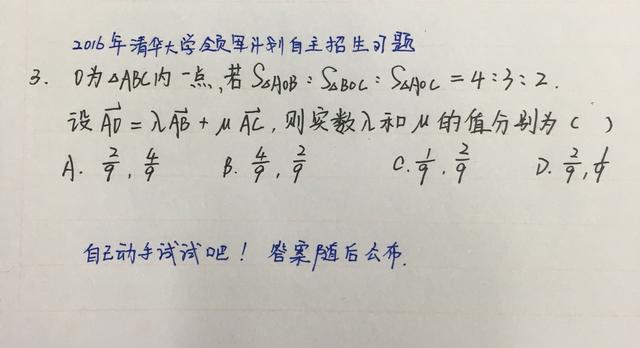 2016年清华大学领军计划自主招生习题
3. O为△ABC内一点,若 S△AOB : S△BOC : S△AOC = 4:3:2.
设 AO⃗ = λAB⃗ + μAC⃗, 则实数λ和μ的值分别为( )
A. 2/9, 4/9 B. 4/9, 2/9 C. 1/9, 2/9 D. 2/9, 1/9
自己动手试试吧! 答案随后公布.